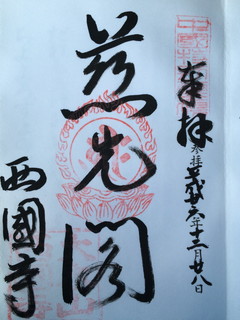 奉拝
参拝平成廿六年十二月廿八日
慈光閣
西國寺